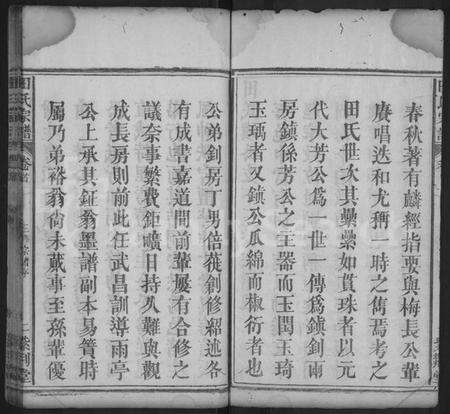 春秋著有麟經指要與梅長公輩
賡唱迭和尤稱一時之雋焉考之
田氏世次其纍纍如貫珠者以元
代大芳公爲一世一傳爲鎮釗兩
房鎮係芳公之主器而玉閏玉琦
玉瑀者又鎮公瓜綿而椒衍者也
公弟釗房丁男倍蓰創修紹述各
有成書嘉道間前輩屢有合修之
議奈事繁費鉅曠日持久難與觀
成長房則前此任武昌訓導雨亭
公上承其鉦翁墨譜副本易簀時
屬乃弟裕翁尙未蕆事至孫輩優
田氏宗譜